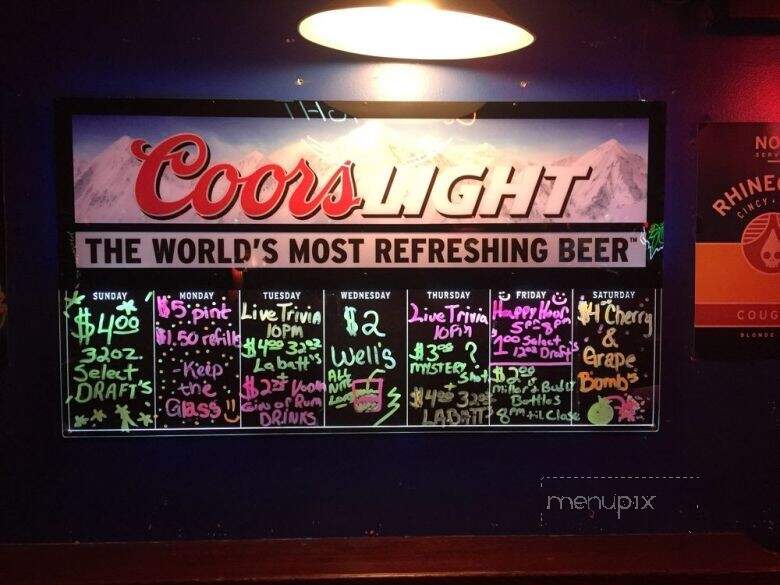 Coors LIGHT
THE WORLD'S MOST REFRESHING BEER™
SUNDAY
$4.00
32oz.
Select
DRAFT'S
MONDAY
$5 pint
$1.50 refills
-Keep
the
Glass
TUESDAY
Live Trivia
10PM
$4.00 32oz
Labatt's
Gin or Rum
DRINKS
WEDNESDAY
$2
Well's
ALL
NITE
LONG
THURSDAY
Live Trivia
10PM
$3.00 ?
MYSTERY
Shot
+
$4.00 32oz
LABATT
FRIDAY
Happy Hour
5pm-8pm
$1.00 Select
12oz Draft's
$2.00
Miller & Bud Lt
Bottles
8pm til Close
SATURDAY
$4 Cherry
&
Grape
Bombs
NO
RHINEG
CINCY
COUG
BLONDE
menupix